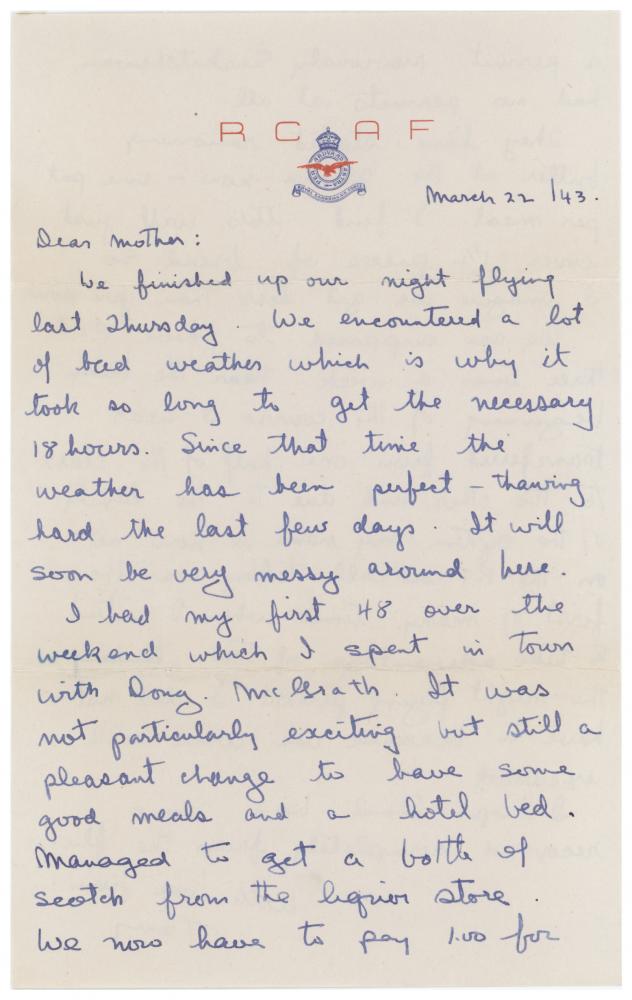 R C A F
March 22 /43.
Dear Mother:
We finished up our night flying
last Thursday. We encountered a lot
of bad weather which is why it
took so long to get the necessary
18 hours. Since that time the
weather has been perfect - thawing
hard the last few days. It will
soon be very messy around here
I had my first 48 over the
weekend which I spent in town
with Doug. McGrath. It was
not particularly exciting but still a
pleasant change to have some
good meals and a hotel bed.
Managed to get a bottle of
scotch from the liquor store.
We now have to pay 1.00 for